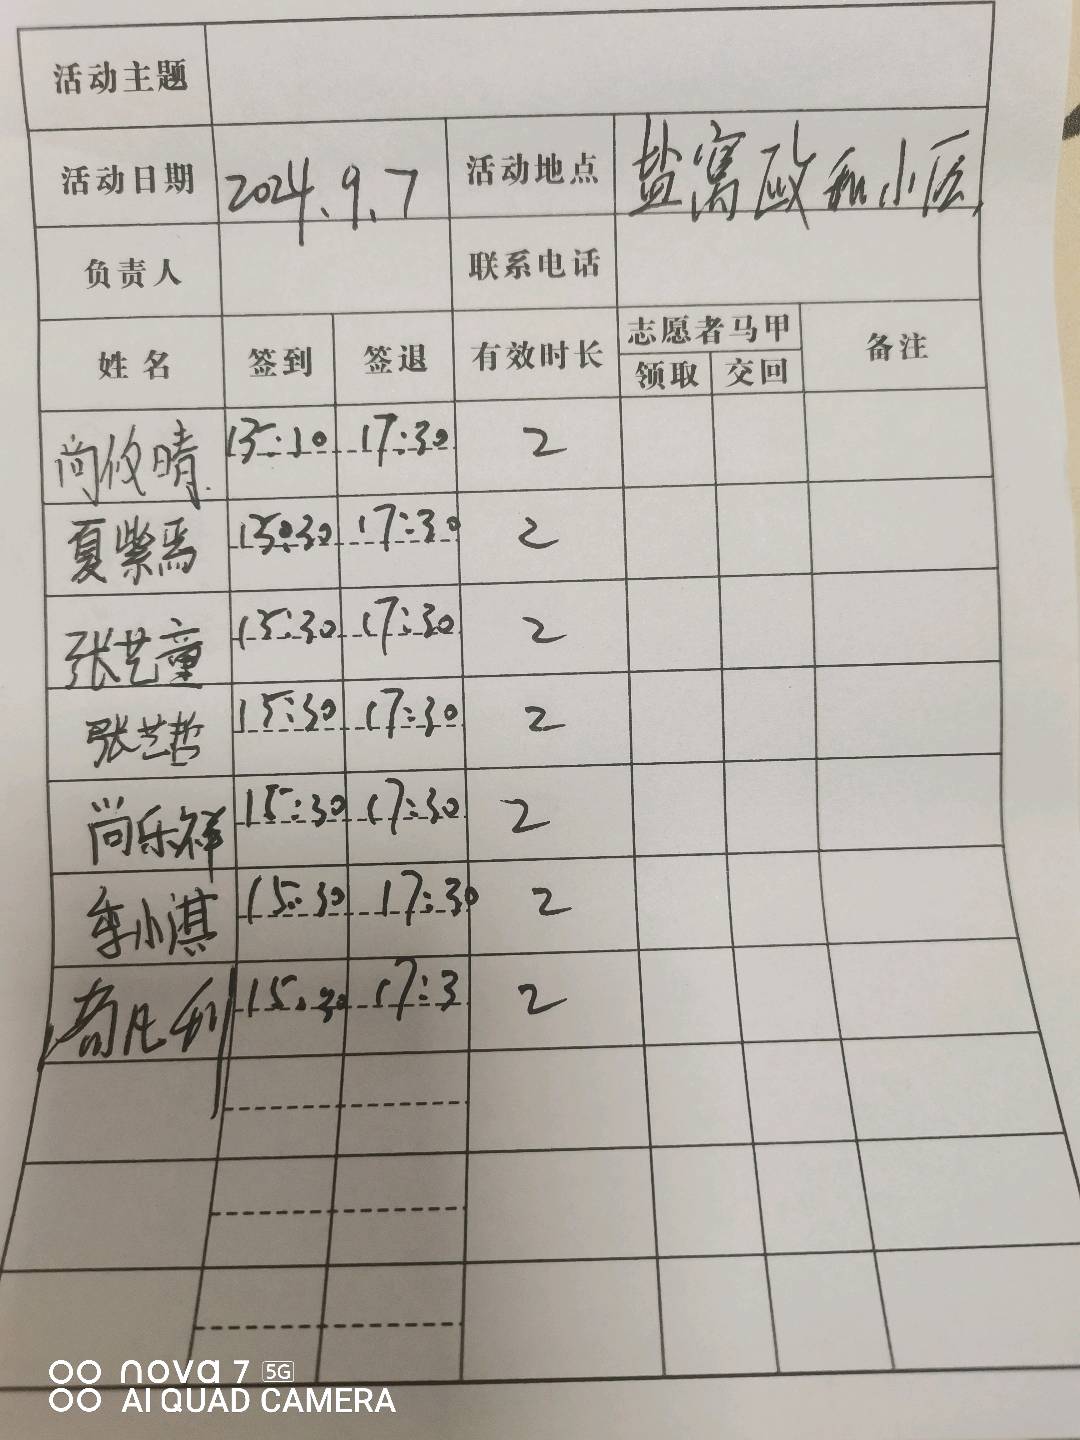 活动主题
活动日期 2024.9.7 活动地点 盐窝政和小区
负责人 联系电话
姓名 签到 签退 有效时长 志愿者马甲 备注
领取 交回
尚攸晴 15:10 17:30 2
夏紫焉 15:30 17:30 2
张艺童 15:30 17:30 2
张艺哲 15:30 17:30 2
尚乐祥 15:30 17:30 2
李小淇 15:30 17:30 2
15:30 17:3 2
nova 7 5G
AI QUAD CAMERA